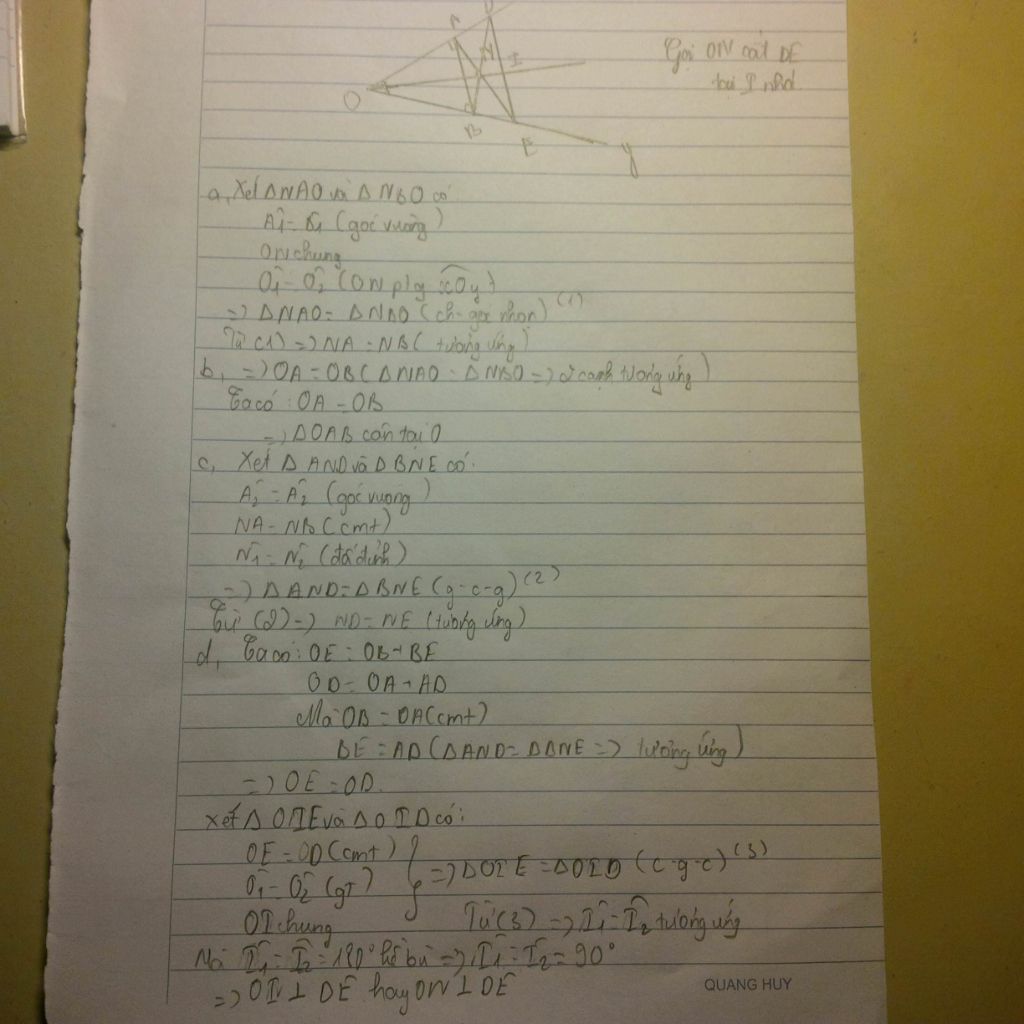 A D
N I
O
B E y
Gọi ON cắt DE
tại I nhá.
a, Xét ΔNAO và ΔNBO có
Â1 = B̂1 (góc vuông)
ON chung
Ô1 = Ô2 (ON p/g xOy)
=> ΔNAO = ΔNBO (ch-góc nhọn) (1)
Từ (1) => NA = NB (tương ứng)
b, => OA = OB (ΔNAO = ΔNBO => 2 cạnh tương ứng)
Ta có: OA = OB
=> ΔOAB cân tại O
c, Xét ΔAND và ΔBNE có:
Â2 = Â2 (góc vuông)
NA = NB (cmt)
N̂1 = N̂2 (đối đỉnh)
=> ΔAND = ΔBNE (g-c-g) (2)
Từ (2) => ND = NE (tương ứng)
d, Ta có: OE = OB + BE
OD = OA + AD
Mà OB = OA (cmt)
BE = AD (ΔAND = ΔBNE => tương ứng)
=> OE = OD.
Xét ΔOIE và ΔOID có:
OE = OD (cmt)
Ô1 = Ô2 (gt)
OI chung
} => ΔOIE = ΔOID (c-g-c) (3)
Từ (3) => Î1 = Î2 tương ứng
Mà Î1 = Î2 = 180° kề bù => Î1 = Î2 = 90°
=> OI ⊥ DE hay ON ⊥ DE
QUANG HUY